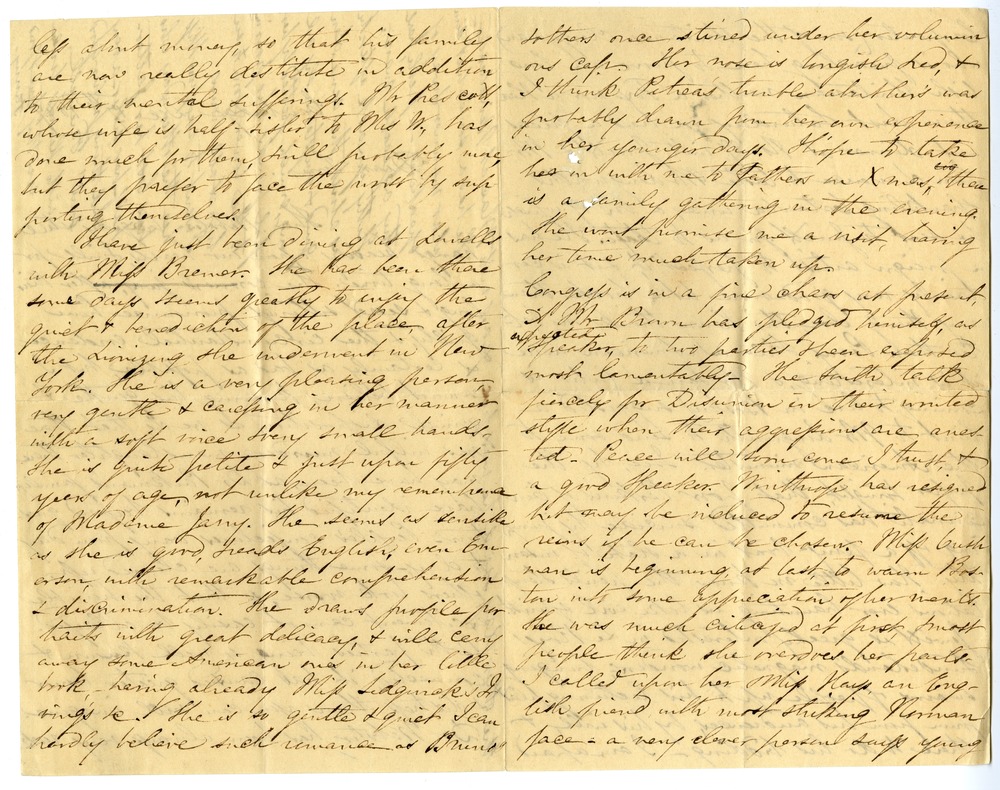 less about money, so that his family
are now really destitute in addition
to their mental sufferings. Mr Prescott,
whose wife is half-sister to Mrs W., has
done much for them, & will probably more,
but they prefer to face the worst by sup-
porting themselves.
I have just been dining at Lowells
with Miss Bremer. She has been there
some days & seems greatly to enjoy the
quiet & benediction of the place after
the Lionizing she underwent in New-
York. She is a very pleasing person,
very gentle & caressing in her manner
with a soft voice & very small hands-
She is quite petite & just upon fifty
years of age, not unlike my remembrance
of Madame Jany. She seems as sensible
as she is good, reads English, even Em-
erson, with remarkable comprehension
& discrimination. She draws profile por
traits with great delicacy, & will carry
away some American ones in her little
book, having already Miss Sedgwick's Ir
vings &c. She is so gentle & quiet I can
hardly believe such romance as Bruno"
& others once stirred under her volumin
ous cap. Her nose is longish & red, &
I think Petreas trouble about hers was
probably drawn from her own experience
in her younger days. I hope to take
her in with me to Fathers on Xmas eve, there
is a family gathering in the evening.
She wont promise me a visit, having
her time much taken up.
Congress is in a fine chaos at present,
Mr Brown has pledged himself, as
expected
Speaker, to two parties & been exposed
most lamentably- The South talk
fiercely for Disunion in their wonted
style when their aggressions are arres-
ted- Peace will soon come I trust, &
a good Speaker. Winthrop has resigned
but may be induced to resume the
reins if he can be chosen. Miss Cush
man is beginning at last to warm Bos-
ton into some appreciation of her merits.
She was much criticized at first & most
people think she overdoes her parts-
I called upon her & Miss Hays, an Eng-
lish friend with most striking Norman
face- a very clever person says young